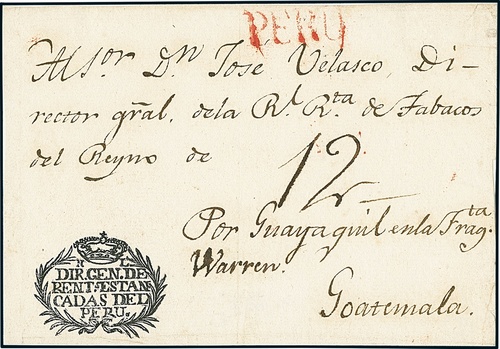 PERU
Al S.or D.n Jose Velasco, Di-
rector gral. dela R.l R.ta de Tabacos
del Reyno de
12
Por Guayaquil enla Frag.ta
Warren.
Goatemala.
R L
DIR.GEN.DE
RENT.ESTAN
CADAS DEL
PERU.